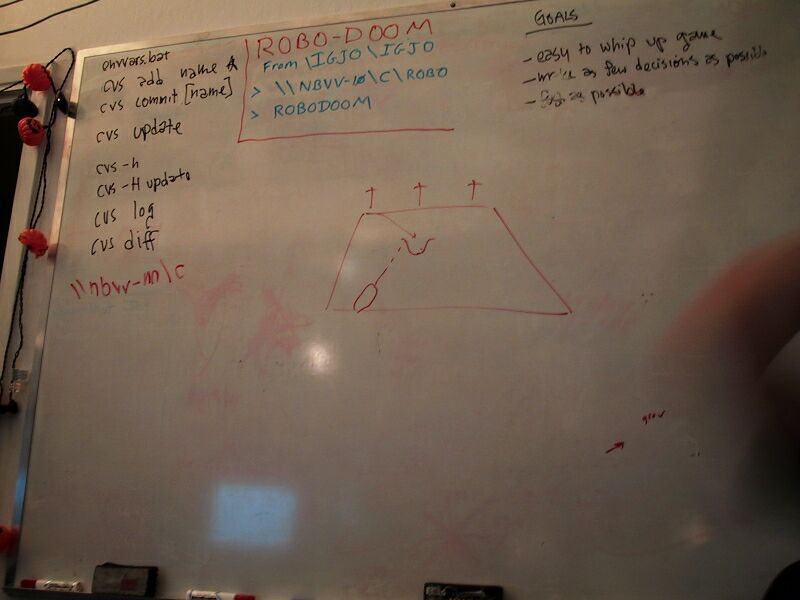 envvars.bat
cvs add name
cvs commit [name]
cvs update
cvs -h
cvs -H update
cvs log
cvs diff
\\nbvv-m\c
ROBO-DOOM
From \IGJO\IGJO
> \\NBVV-10\C\ROBO
> ROBODOOM
GOALS
- easy to whip up game
- as few decisions as possible
- as possible
grav